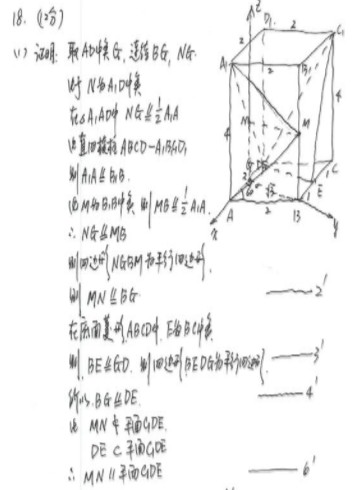 18. (12分)
(1) 证明: 取AD中点G, 连结BG, NG.
由于N为A₁D中点
在△A₁AD中 NG∥=½A₁A
由直四棱柱 ABCD-A₁B₁C₁D₁
则A₁A∥=B₁B.
由M为B₁B中点 则MB∥=½A₁A.
∴ NG∥=MB
则四边形NGBM为平行四边形.
则 MN∥=BG —— 2'
在底面菱形ABCD中, E为BC中点
则 BE∥=GD. 则四边形BEDG为平行四边形. —— 3'
所以 BG∥=DE. —— 4'
由 MN⊄平面C₁DE
DE⊂平面C₁DE
∴ MN∥平面C₁DE —— 6'
z
D₁
2
C₁
A₁
2
B₁
4
4
M
N
4
G
D
C
E
60°
√3
1
1
A
2
B
x
y